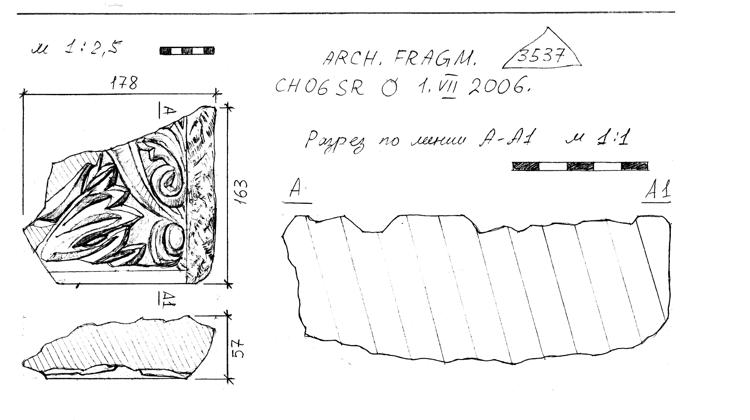 м 1:2,5
ARCH. FRAGM. 3537
CH06SR Ø 1. VII 2006.
178
A
163
A1
57
Разрез по линии А-А1 м 1:1
A
A1